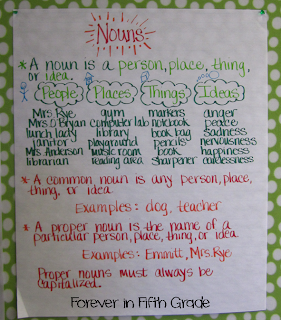 Nouns
* A noun is a person, place, thing, or idea.
People Places Things Ideas
Mrs. Rye gym markers anger
Mrs. O'Bryan computer lab notebook peace
lunch lady library book bag sadness
janitor playground pencils nervousness
Mrs. Anderson music room book happiness
librarian reading area sharpener carelessness
* A common noun is any person, place, thing, or idea.
Examples: dog, teacher
* A proper noun is the name of a
particular person, place, thing, or idea.
Examples: Emmitt, Mrs. Rye
Proper nouns must always be
capitalized.
Forever in Fifth Grade